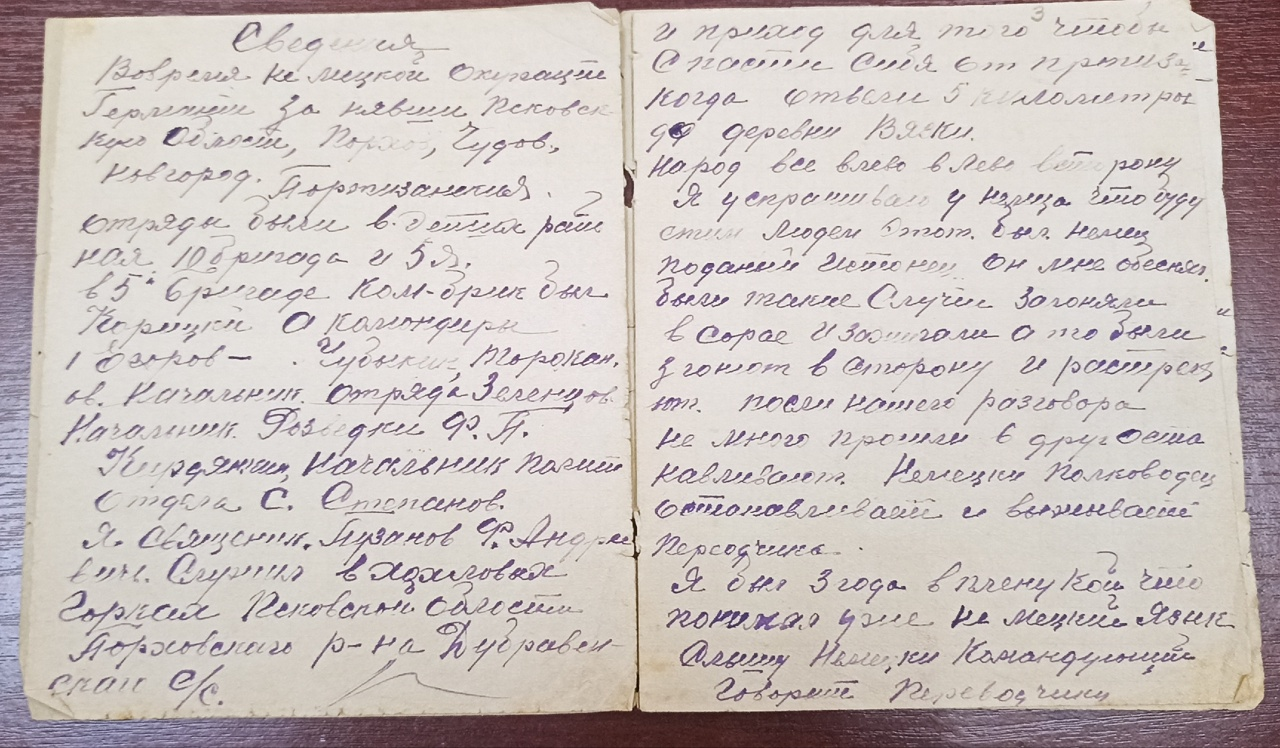 Сведения
Вовремя не мецкой окупации
Германи за нявши Псковск-
кую Область, Порхов, Чудов,
Новгород. Портизанския
отряды были в
ная 10 бригада и 5 я.
в 5й бригаде Ком-брик был
Карицки а командиры
1 Егоров — Чубыкин Торокан.
ов. Начальник отряда Зеленцов
Начальник Розведки Ф. П.
Кирдянкин, Начальник Полит
Отдела С. Степанов.
Я Священик. Пузанов Ф. Андре
вич. Служил в Хохловых
Горках Псковской Области
Порховскаго р-на Дубравен-
скаи с/с.
3
и приход для того чтобы
Спасти Себя от
когда отвели 5 километры
до деревни Вяски.
народ все влево влево
Я успрашиваю у немца что буду
стим людем Этот был немец
поданий Истонец он мне обеснял.
были такие Случии загоняли
в сорае и зажигали а то были
згонют в сторону и растрел
ют. посли нашего разговора
не много прошли в друг оста
навливают Немецки Полководец
останавливаит и вызываит
переодчика.
Я был 3 года в плену кой что
понимал уже не мецкий Язык
Слышу Немецки Командующий
Говорит Переводчику